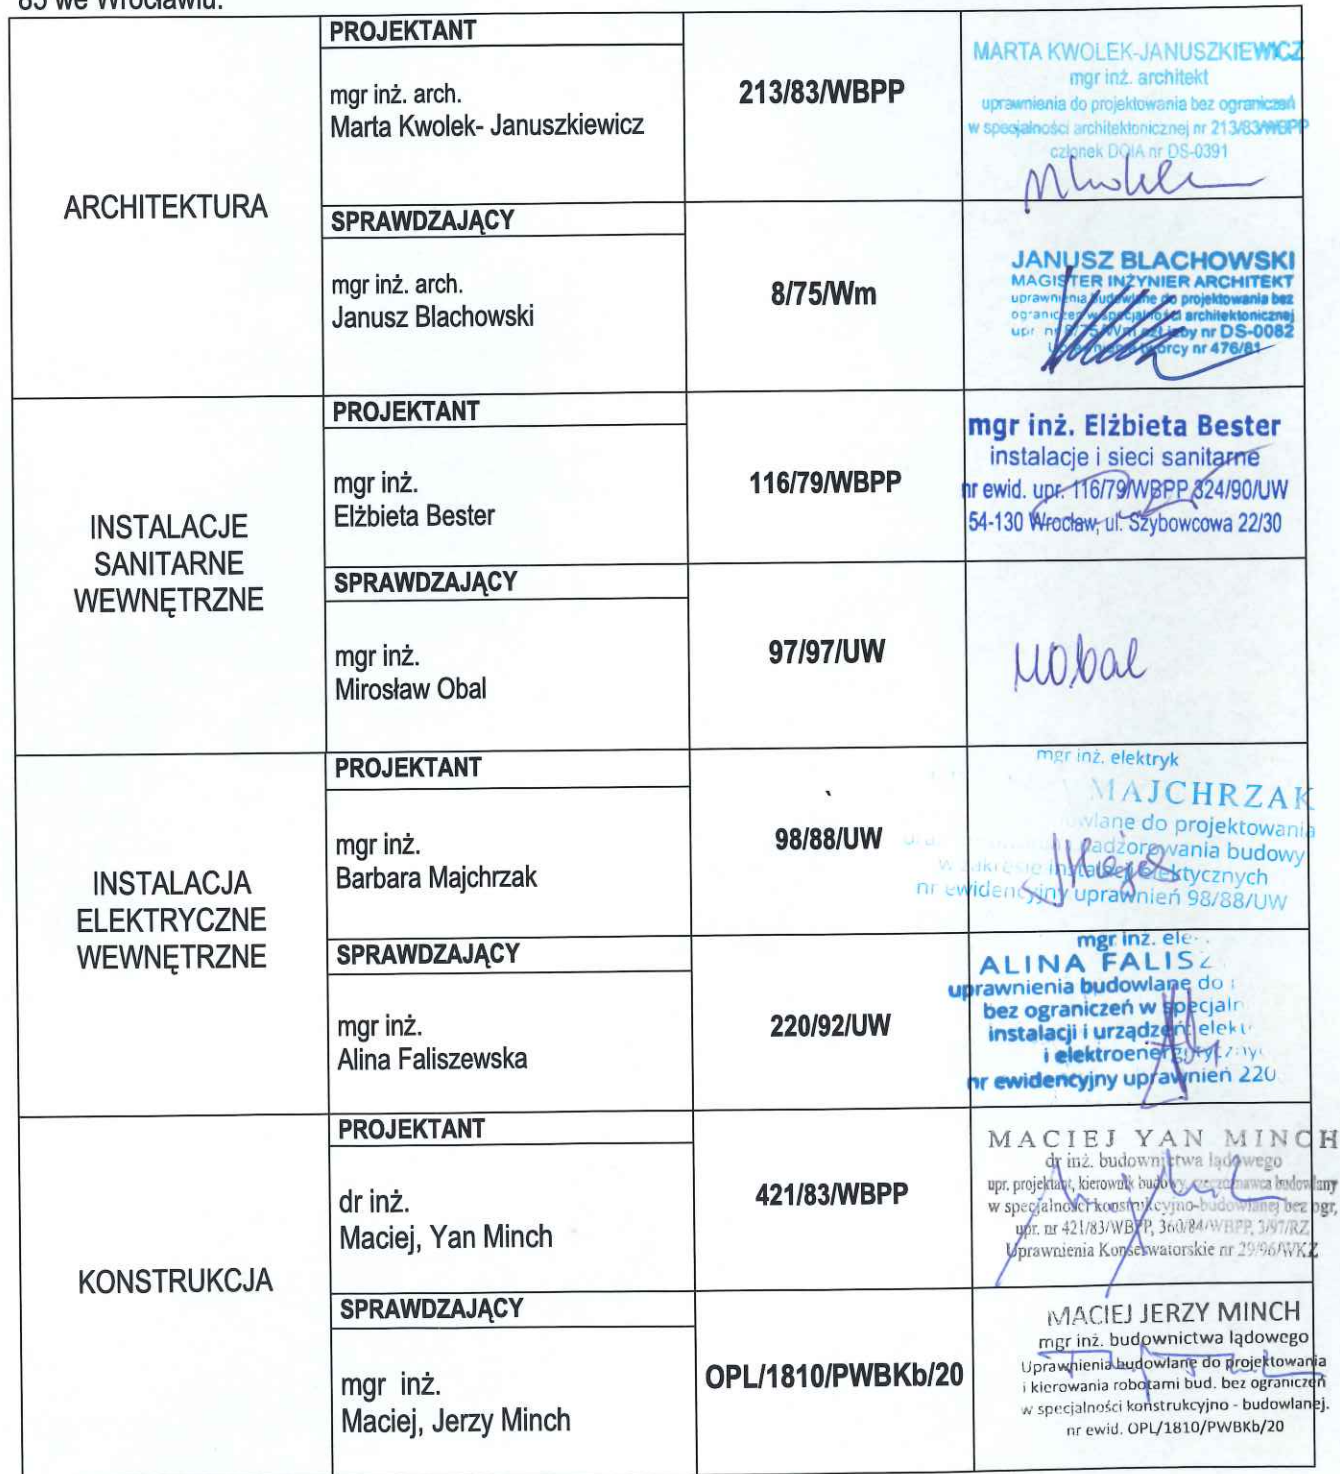 85 we Wrocławiu.
ARCHITEKTURA
PROJEKTANT
mgr inż. arch.
Marta Kwolek- Januszkiewicz
213/83/WBPP
MARTA KWOLEK-JANUSZKIEWICZ
mgr inż. architekt
uprawnienia do projektowania bez ograniczeń
w specjalności architektonicznej nr 213/83/WBPP
członek DOIA nr DS-0391
SPRAWDZAJĄCY
mgr inż. arch.
Janusz Blachowski
8/75/Wm
JANUSZ BLACHOWSKI
MAGISTER INŻYNIER ARCHITEKT
uprawnienia budowlane do projektowania bez
ograniczeń w specjalności architektonicznej
upr. nr 8/75/Wm izby nr DS-0082
twórcy nr 476/81
INSTALACJE
SANITARNE
WEWNĘTRZNE
PROJEKTANT
mgr inż.
Elżbieta Bester
116/79/WBPP
mgr inż. Elżbieta Bester
instalacje i sieci sanitarne
nr ewid. upr. 116/79/WBPP 324/90/UW
54-130 Wrocław, ul. Szybowcowa 22/30
SPRAWDZAJĄCY
mgr inż.
Mirosław Obal
97/97/UW
MObal
INSTALACJA
ELEKTRYCZNE
WEWNĘTRZNE
PROJEKTANT
mgr inż.
Barbara Majchrzak
98/88/UW
mgr inż. elektryk
MAJCHRZAK
do projektowania
nadzorowania budowy
w zakresie instalacji elektycznych
nr ewidencyjny uprawnień 98/88/UW
SPRAWDZAJĄCY
mgr inż.
Alina Faliszewska
220/92/UW
mgr inż. ele
ALINA FALISZ
uprawnienia budowlane do
bez ograniczeń w specjaln
instalacji i urządzeń elekt
i elektroenergetyczny
nr ewidencyjny uprawnień 220
KONSTRUKCJA
PROJEKTANT
dr inż.
Maciej, Yan Minch
421/83/WBPP
MACIEJ YAN MINCH
dr inż. budownictwa lądowego
upr. projektant, kierownik budowy, rzeczoznawca budowlany
w specjalności konstrukcyjno-budowlanej bez ogr,
upr. nr 421/83/WBPP, 360/84/WBPP, 3/97/RZ
Uprawnienia Konserwatorskie nr 29/96/WKZ
SPRAWDZAJĄCY
mgr inż.
Maciej, Jerzy Minch
OPL/1810/PWBKb/20
MACIEJ JERZY MINCH
mgr inż. budownictwa lądowego
Uprawnienia budowlane do projektowania
i kierowania robotami bud. bez ograniczeń
w specjalności konstrukcyjno - budowlanej.
nr ewid. OPL/1810/PWBKb/20